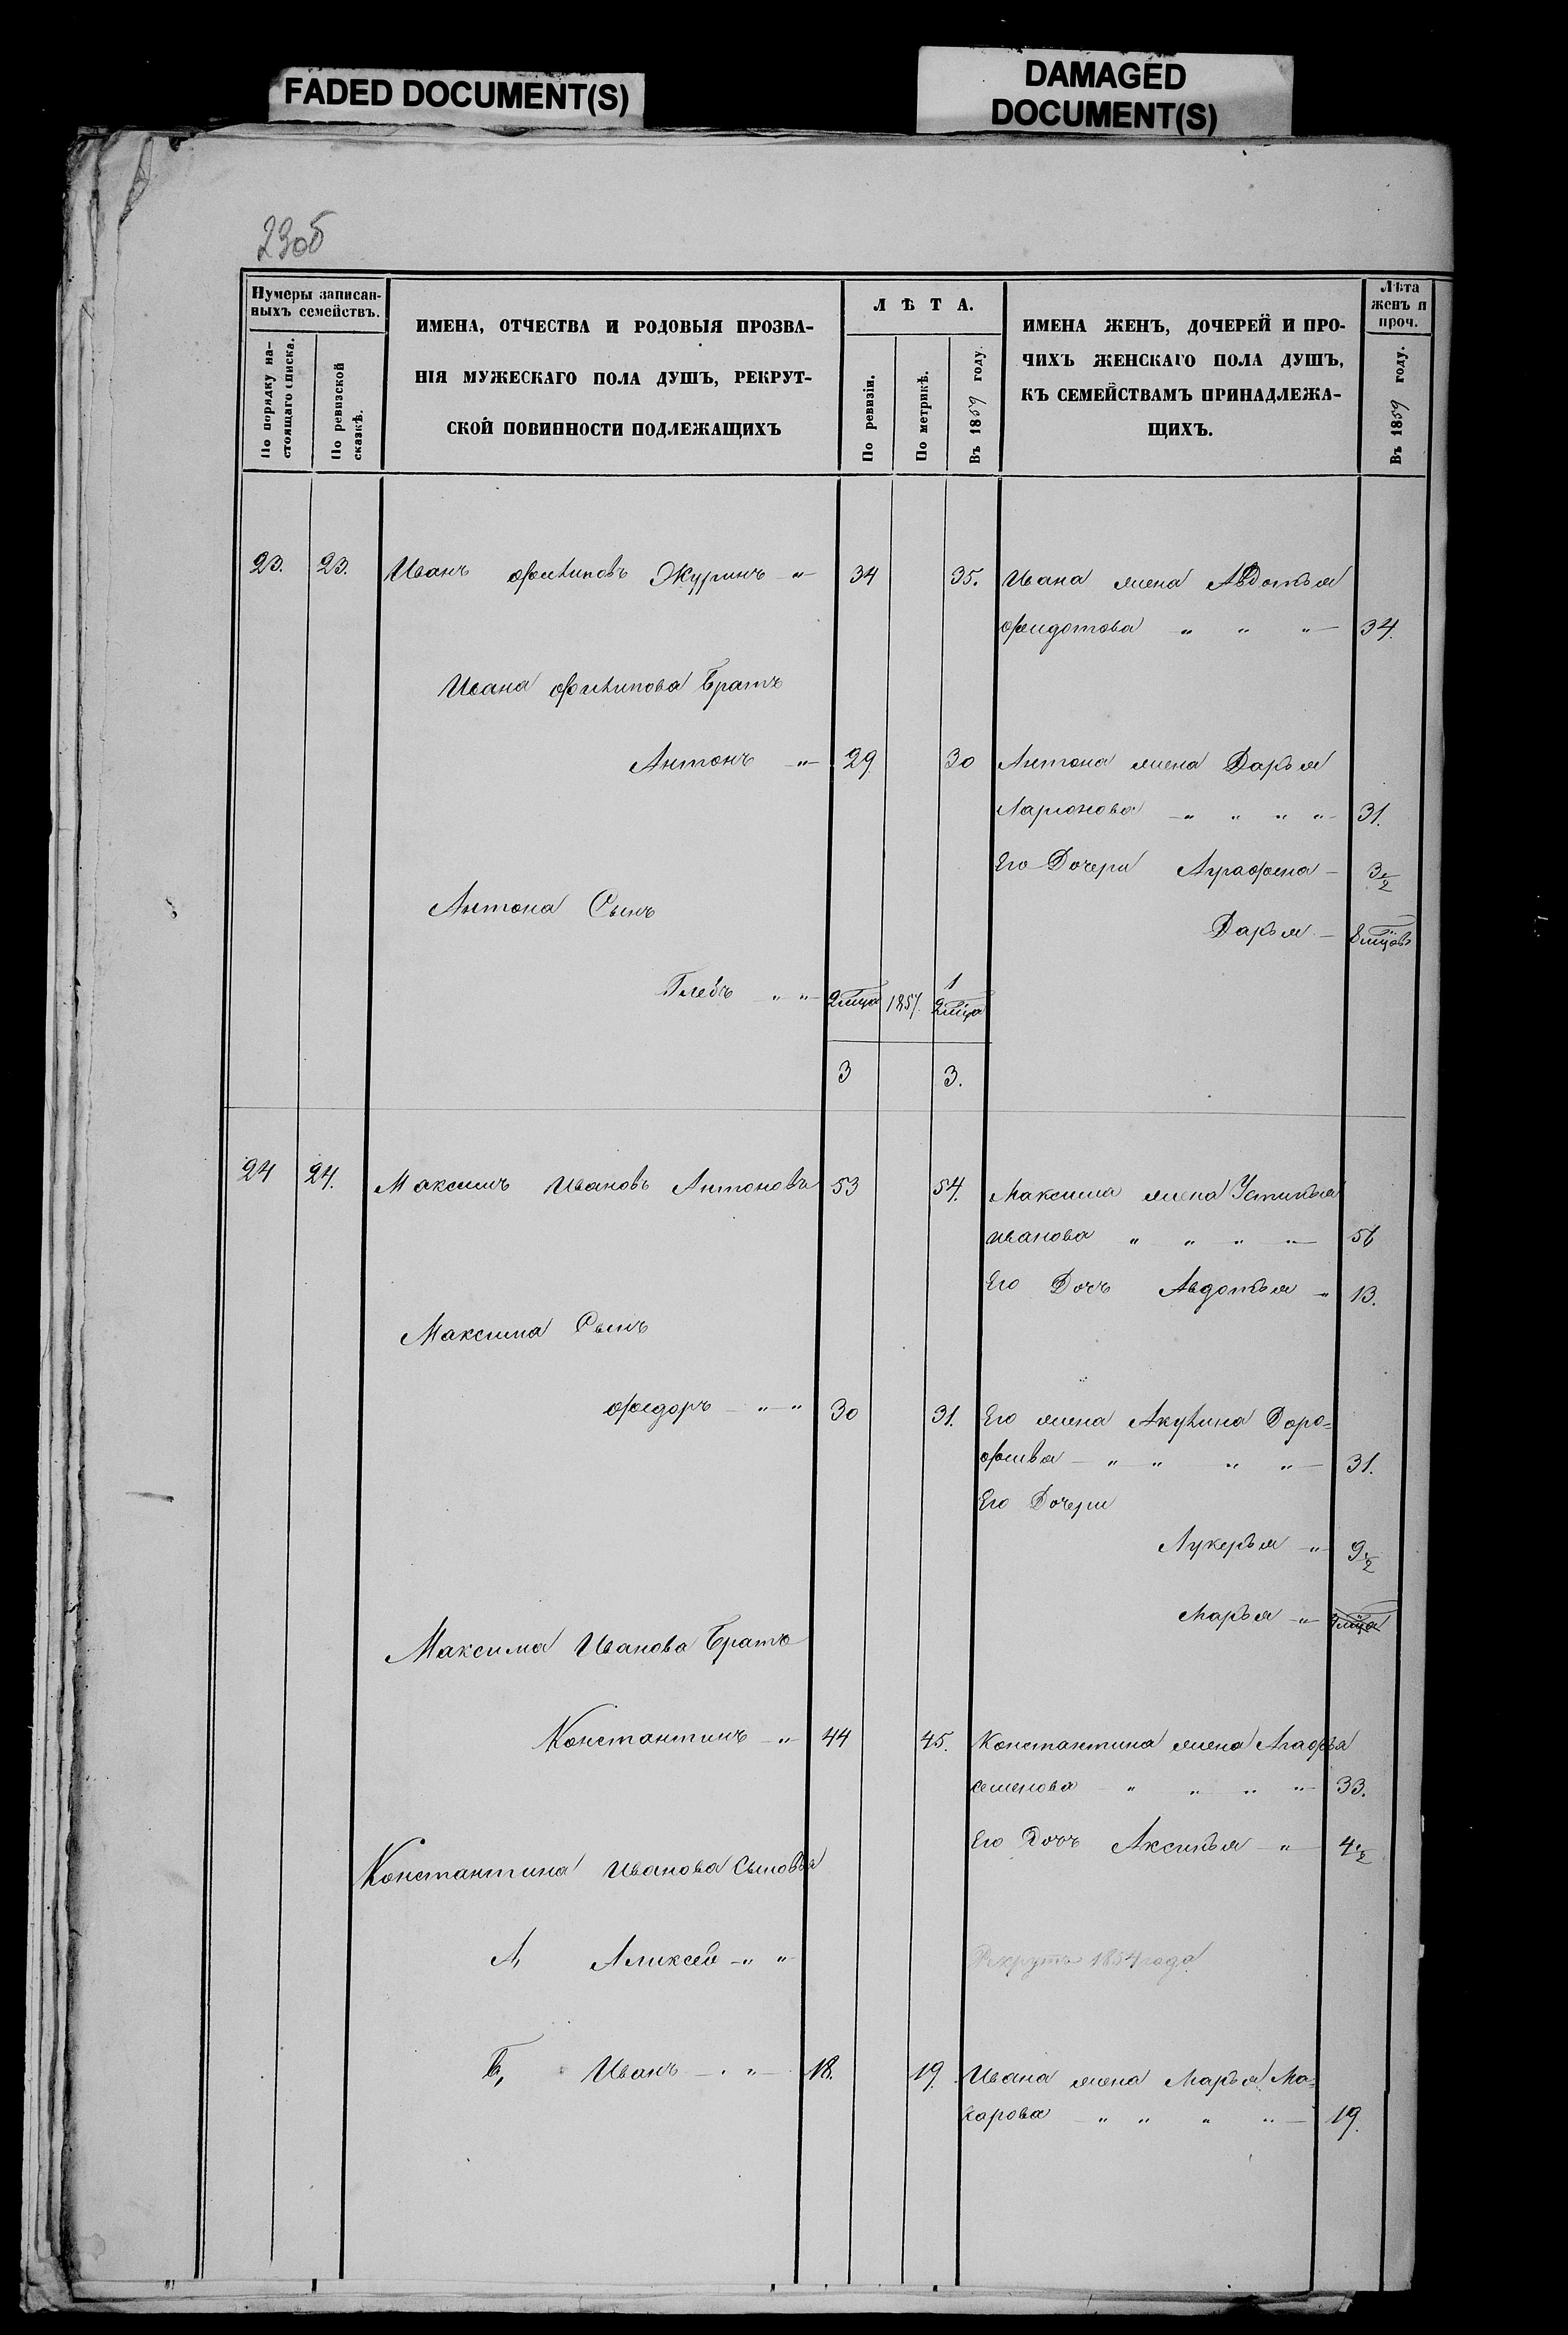 FADED DOCUMENT(S)
DAMAGED
DOCUMENT(S)
23об
Нумеры записан-
ныхъ семействъ.
По порядку на-
стоящаго списка.
По ревизской
сказкѣ.
ИМЕНА, ОТЧЕСТВА И РОДОВЫЯ ПРОЗВА-
НІЯ МУЖЕСКАГО ПОЛА ДУШЪ, РЕКРУТ-
СКОЙ ПОВИННОСТИ ПОДЛЕЖАЩИХЪ
ЛѢТА.
По ревизіи.
По метрикѣ.
Въ 1859 году.
ИМЕНА ЖЕНЪ, ДОЧЕРЕЙ И ПРО-
ЧИХЪ ЖЕНСКАГО ПОЛА ДУШЪ,
КЪ СЕМЕЙСТВАМЪ ПРИНАДЛЕЖА-
ЩИХЪ.
Лѣта
женъ и
проч.
Въ 1859 году.
23. 23. Иванъ Филиповъ Журинъ 34 35. Ивана жена Авдотья
Федотова 34.
Ивана Филипова Братъ
Антонъ 29. 30 Антона жена Дарья
Ларионова 31.
Его Дочери Аграфена 3½
Антона Сынъ
Дарья 8 мцовъ
Глебъ 2 мца 1857. 1 2 мца
3 3.
24 24. Максимъ Ивановъ Антоновъ 53 54. Максима жена Устинья
Иванова 56
Его Дочь Авдотья 13.
Максима Сынъ
Федоръ 30 31. Его жена Акулина Доро=
фиева 31.
Его Дочери
Лукерья 9½
Марья 4 мца
Максима Иванова Братъ
Константинъ 44 45. Константина жена Агафья
Семенова 33.
Его Дочь Аксинья 4½
Константина Иванова Сыновья
А, Алексей Рекрутъ 1854 года
Б, Иванъ 18. 19. Ивана жена Марья Ма=
карова 19.